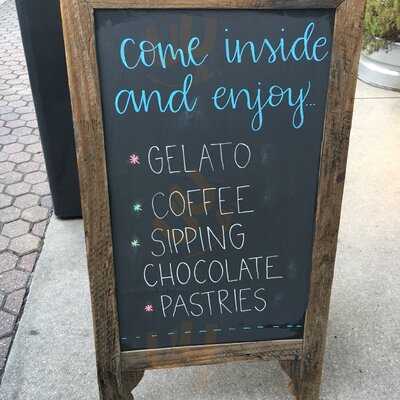 come inside
and enjoy...
* GELATO
* COFFEE
* SIPPING
CHOCOLATE
* PASTRIES